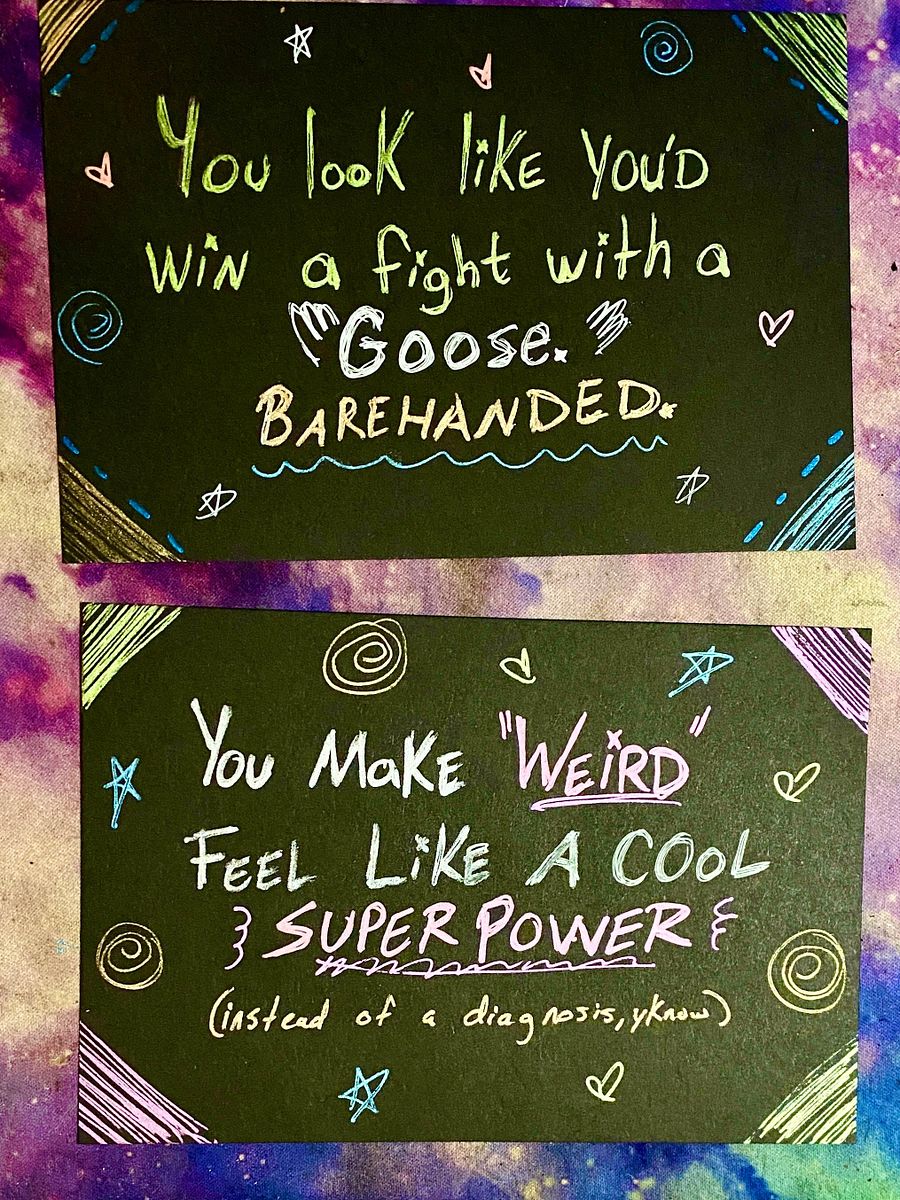 You look like YOU'D
WIN a fight with a
"Goose."
BAREHANDED.
You MaKE "WEiRD"
FEEL LiKE A COOL
SUPER POWER
(instead of a diagnosis, yknow)